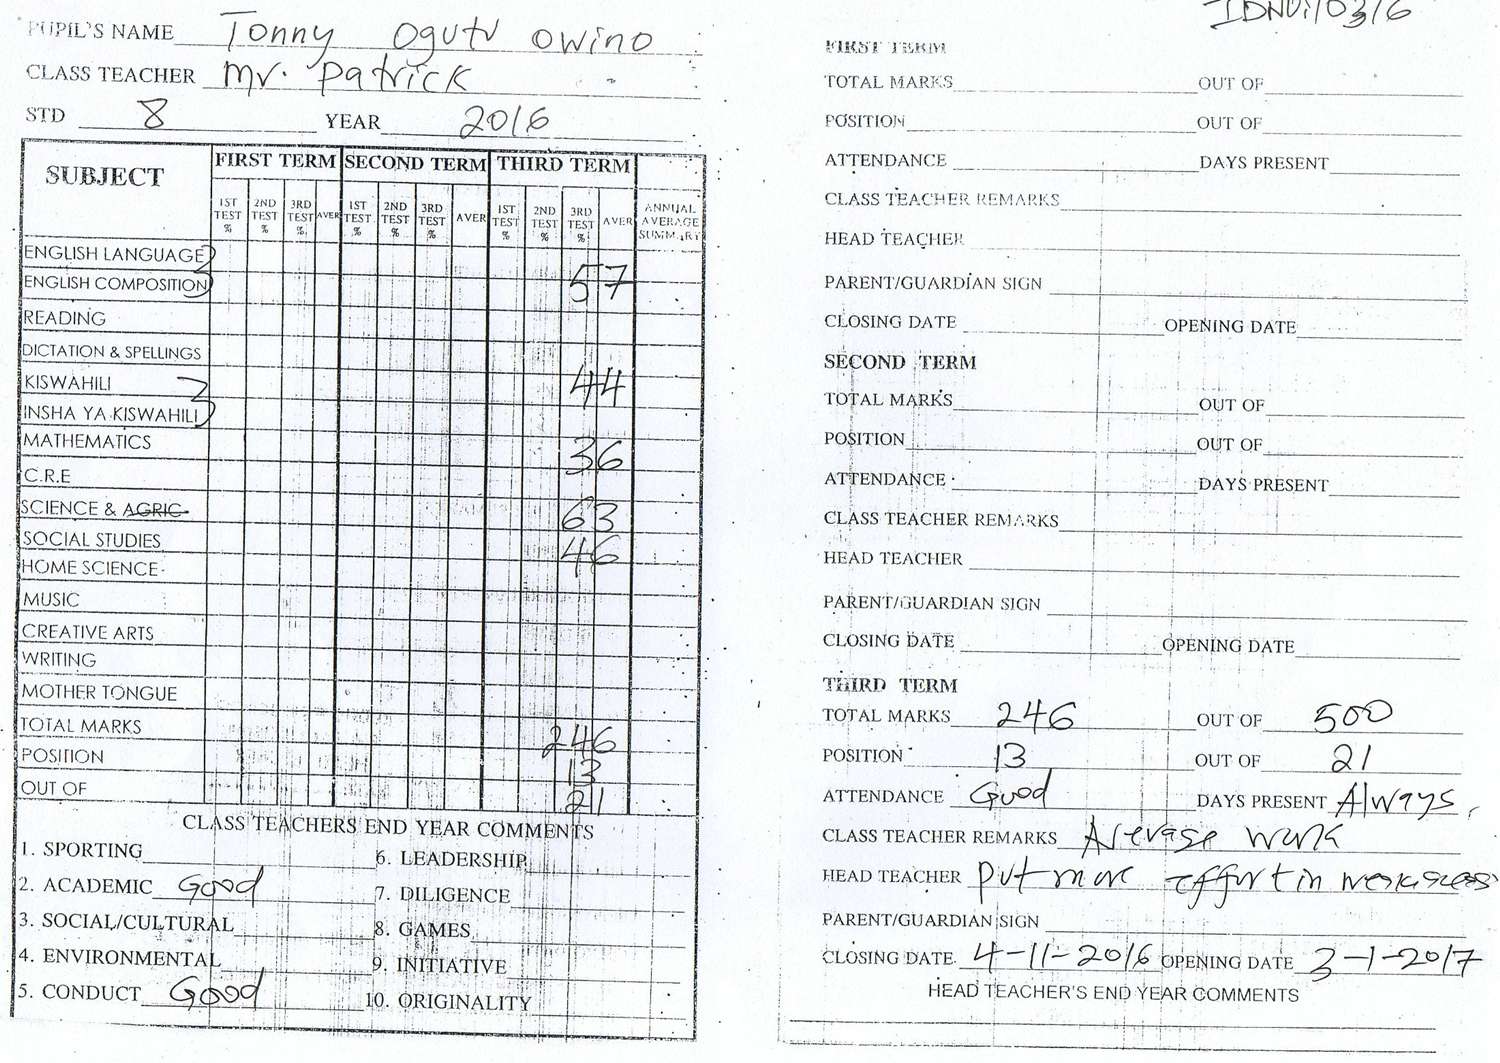 PUPIL'S NAME Tonny Ogutu Owino
CLASS TEACHER Mr. Patrick
STD 8 YEAR 2016
SUBJECT FIRST TERM SECOND TERM THIRD TERM
1ST TEST % 2ND TEST % 3RD TEST % AVER 1ST TEST % 2ND TEST % 3RD TEST % AVER 1ST TEST % 2ND TEST % 3RD TEST % AVER ANNUAL AVERAGE SUMMARY
ENGLISH LANGUAGE
ENGLISH COMPOSITION 57
READING
DICTATION & SPELLINGS
KISWAHILI 44
INSHA YA KISWAHILI
MATHEMATICS 36
C.R.E
SCIENCE & AGRIC 63
SOCIAL STUDIES 46
HOME SCIENCE
MUSIC
CREATIVE ARTS
WRITING
MOTHER TONGUE
TOTAL MARKS 246
POSITION 13
OUT OF 21
CLASS TEACHERS END YEAR COMMENTS
1. SPORTING 6. LEADERSHIP
2. ACADEMIC Good 7. DILIGENCE
3. SOCIAL/CULTURAL 8. GAMES
4. ENVIRONMENTAL 9. INITIATIVE
5. CONDUCT Good 10. ORIGINALITY
FIRST TERM
TOTAL MARKS OUT OF
POSITION OUT OF
ATTENDANCE DAYS PRESENT
CLASS TEACHER REMARKS
HEAD TEACHER
PARENT/GUARDIAN SIGN
CLOSING DATE OPENING DATE
SECOND TERM
TOTAL MARKS OUT OF
POSITION OUT OF
ATTENDANCE DAYS PRESENT
CLASS TEACHER REMARKS
HEAD TEACHER
PARENT/GUARDIAN SIGN
CLOSING DATE OPENING DATE
THIRD TERM
TOTAL MARKS 246 OUT OF 500
POSITION 13 OUT OF 21
ATTENDANCE Good DAYS PRESENT Always,
CLASS TEACHER REMARKS Average work
HEAD TEACHER put more effort in weaknesses
PARENT/GUARDIAN SIGN
CLOSING DATE 4-11-2016 OPENING DATE 3-1-2017
HEAD TEACHER'S END YEAR COMMENTS